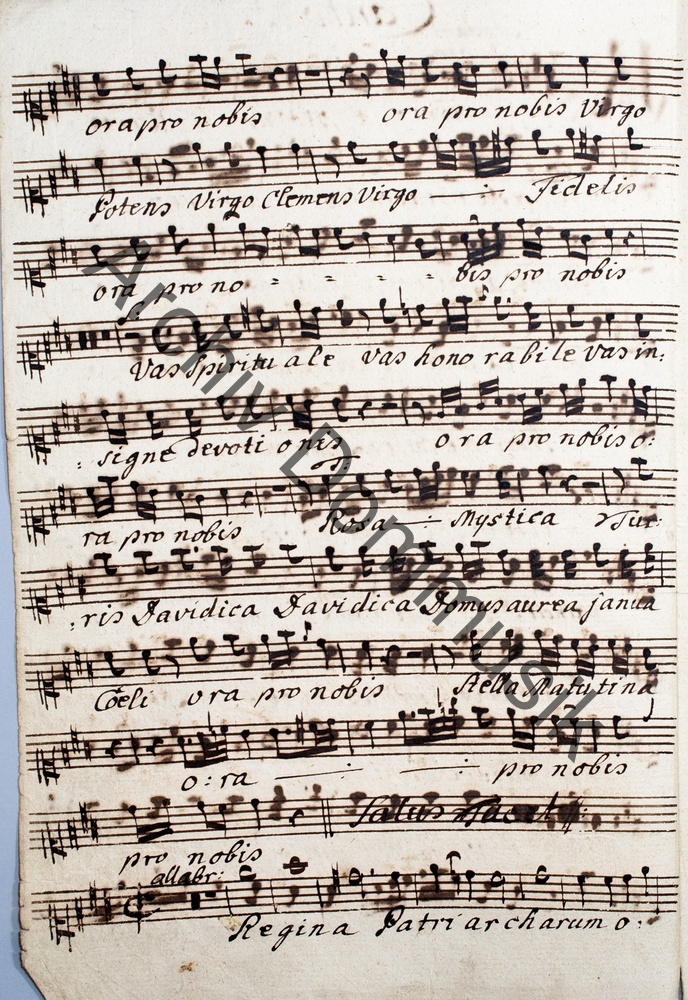 ora pro nobis ora pro nobis Virgo
Potens Virgo Clemens Virgo Fidelis
ora pro no - - - - bis pro nobis
Vas spirituale Vas honorabile Vas in:
:signe devotionis ora pro nobis o:
ra pro nobis Rosa Mystica Tur:
:ris Davidica Davidica Domus aurea janua
Coeli ora pro nobis Stella Matutina
o:ra pro nobis
pro nobis Salus Tacet
allabr:
Regina Patriarcharum o:
Archiv Dommusik